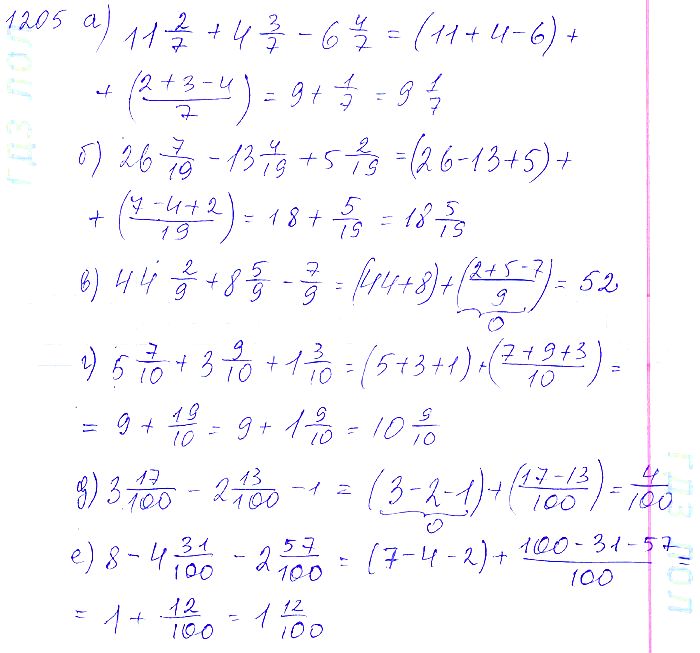 1205 а) 11 2/7 + 4 3/7 - 6 4/7 = (11 + 4 - 6) +
+ ((2 + 3 - 4)/7) = 9 + 1/7 = 9 1/7
б) 26 7/19 - 13 4/19 + 5 2/19 = (26 - 13 + 5) +
+ ((7 - 4 + 2)/19) = 18 + 5/19 = 18 5/19
в) 44 2/9 + 8 5/9 - 7/9 = (44 + 8) + ((2 + 5 - 7)/9) = 52
0
г) 5 7/10 + 3 9/10 + 1 3/10 = (5 + 3 + 1) + ((7 + 9 + 3)/10) =
= 9 + 19/10 = 9 + 1 9/10 = 10 9/10
д) 3 17/100 - 2 13/100 - 1 = (3 - 2 - 1) + ((17 - 13)/100) = 4/100
0
е) 8 - 4 31/100 - 2 57/100 = (7 - 4 - 2) + (100 - 31 - 57)/100 =
= 1 + 12/100 = 1 12/100